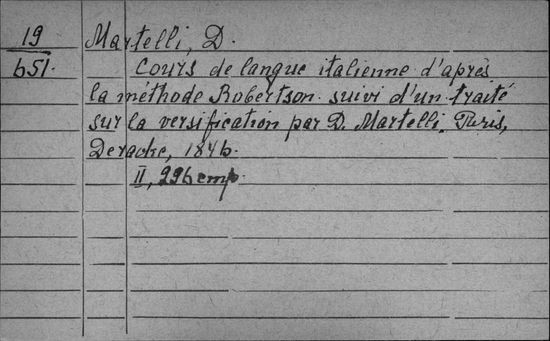 19 Martelli, D.
651. Cours de langue italienne d'après
la méthode Robertson suivi d'un traité
sur la versification par D. Martelli. Paris,
Derache, 1846.
II, 296 стр.